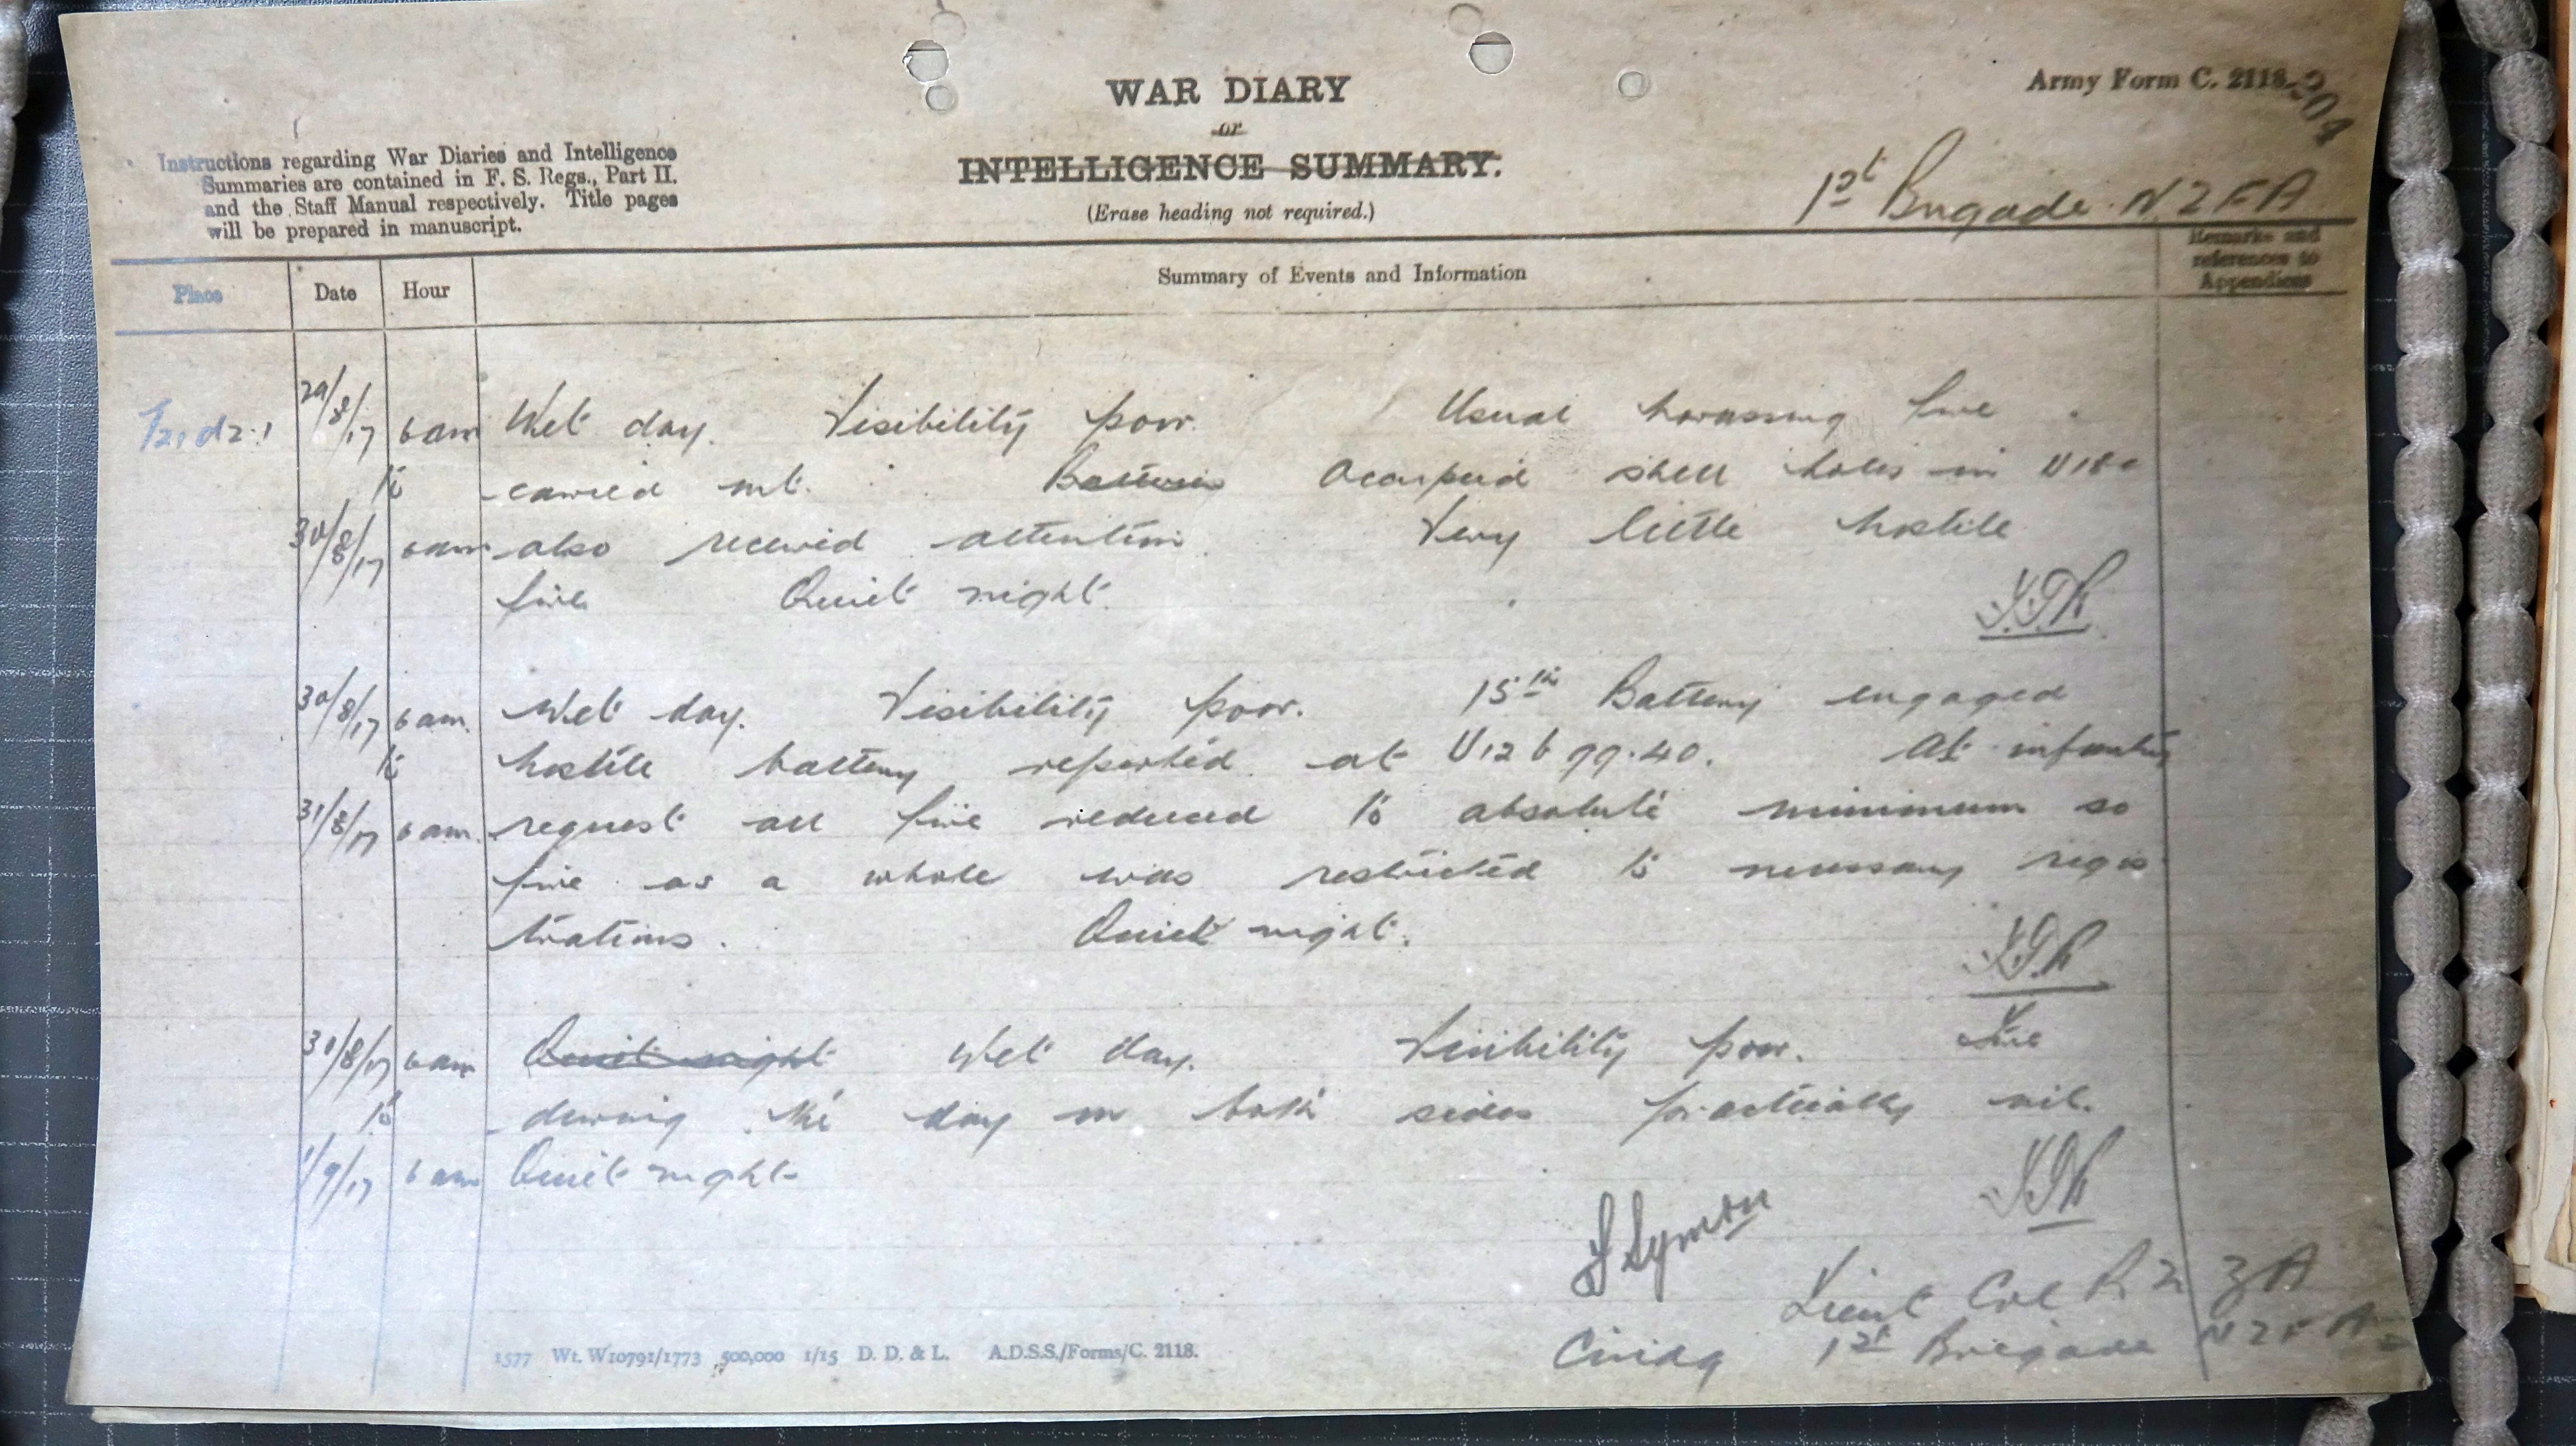 WAR DIARY
or
INTELLIGENCE SUMMARY.
(Erase heading not required.)
Army Form C. 2118.
204
Instructions regarding War Diaries and Intelligence
Summaries are contained in F. S. Regs., Part II.
and the Staff Manual respectively. Title pages
will be prepared in manuscript.
1st Brigade N Z F A
Place Date Hour Summary of Events and Information Remarks and references to Appendices
29/8/17 6 am Wet day. Visibility poor. Usual harassing fire
to carried out. Batteries Occupied shell holes in U18c
30/8/17 6 am also received attention. Very little hostile
fire Quiet night.
30/8/17 6 am. Wet day. Visibility poor. 15th Battery engaged
to hostile battery reported at U12 b 99.40. At infantry
31/8/17 6 am. request all fire reduced to absolute minimum so
fire as a whole was restricted to necessary regis
trations. Quiet night.
31/8/17 6 am Quiet night Wet day. Visibility poor. Fire
to during the day on both sides practically nil.
1/9/17 6 am Quiet night
F Symon
Lieut Col R N Z A
Cmdg 1st Brigade N Z F A
1577 Wt. W10791/1773 500,000 1/15 D. D. & L. A.D.S.S./Forms/C. 2118.